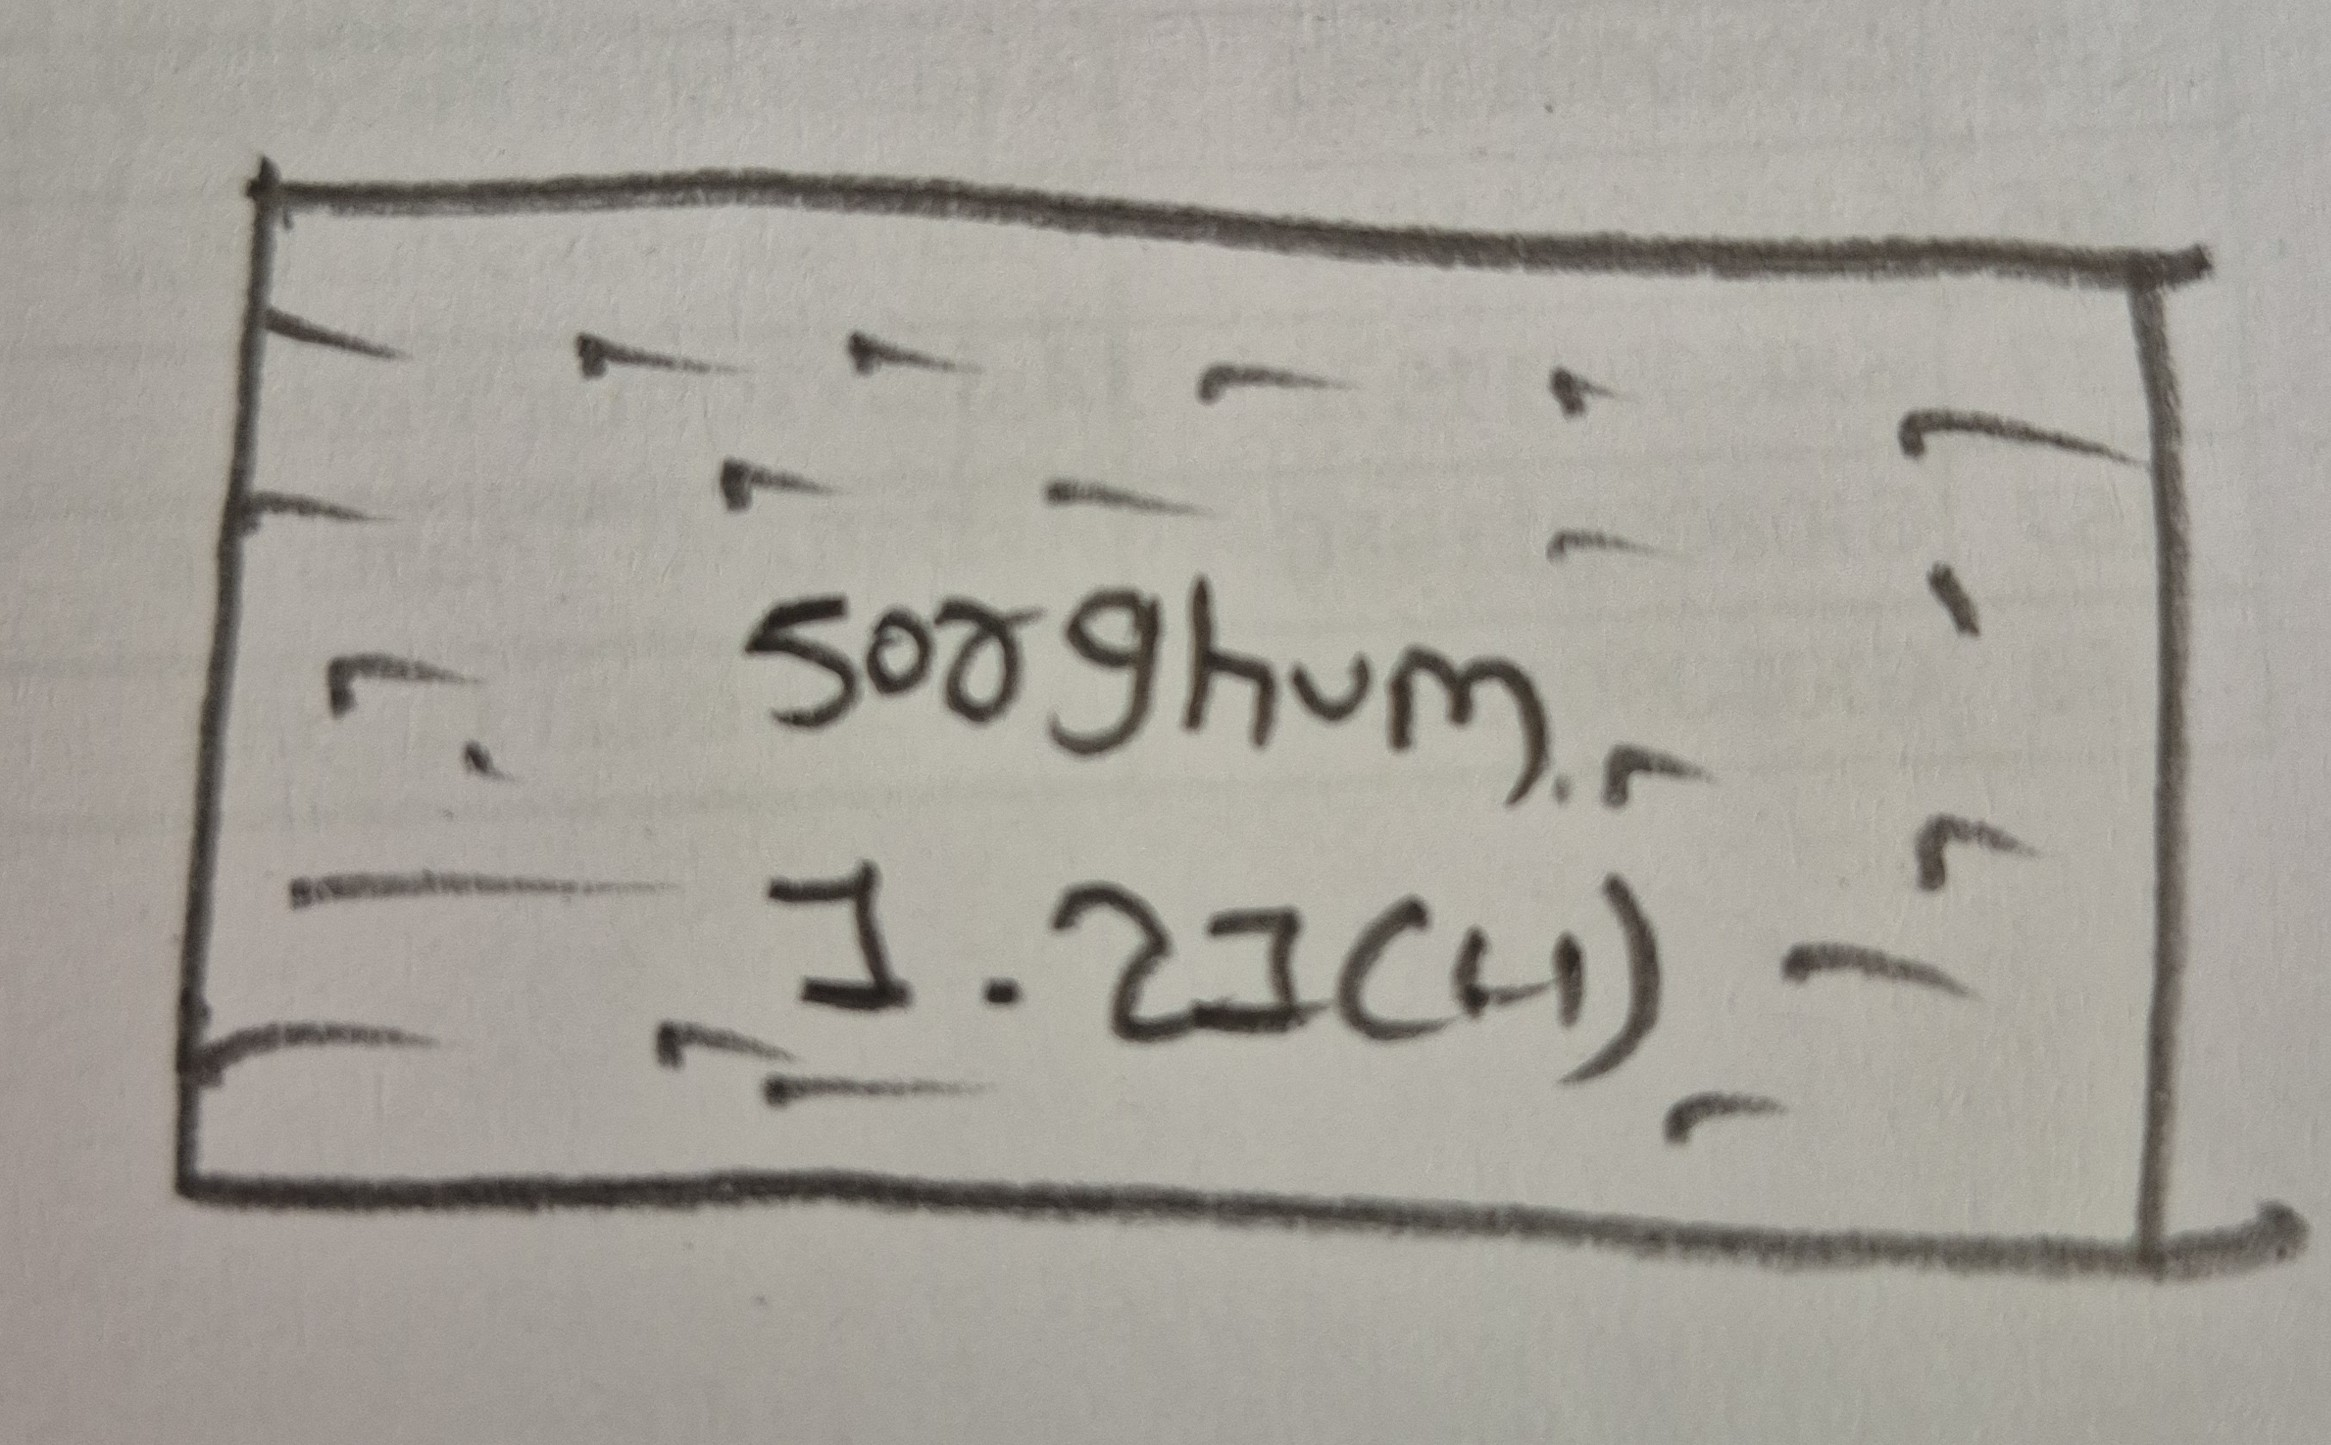 Sorghum
1.21(H)